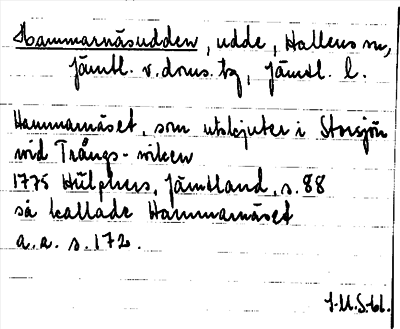 Hammarnäsudden, udde, Hallens sn,
Jämtl. v. doms. tg, Jämtl. l.
Hammarnäset, som utskjuter i Storsjön
wid Trångs-wiken
1775 Hülphers, Jämtland, s. 88
så kallade Hammarnäset
a.a. s. 172.